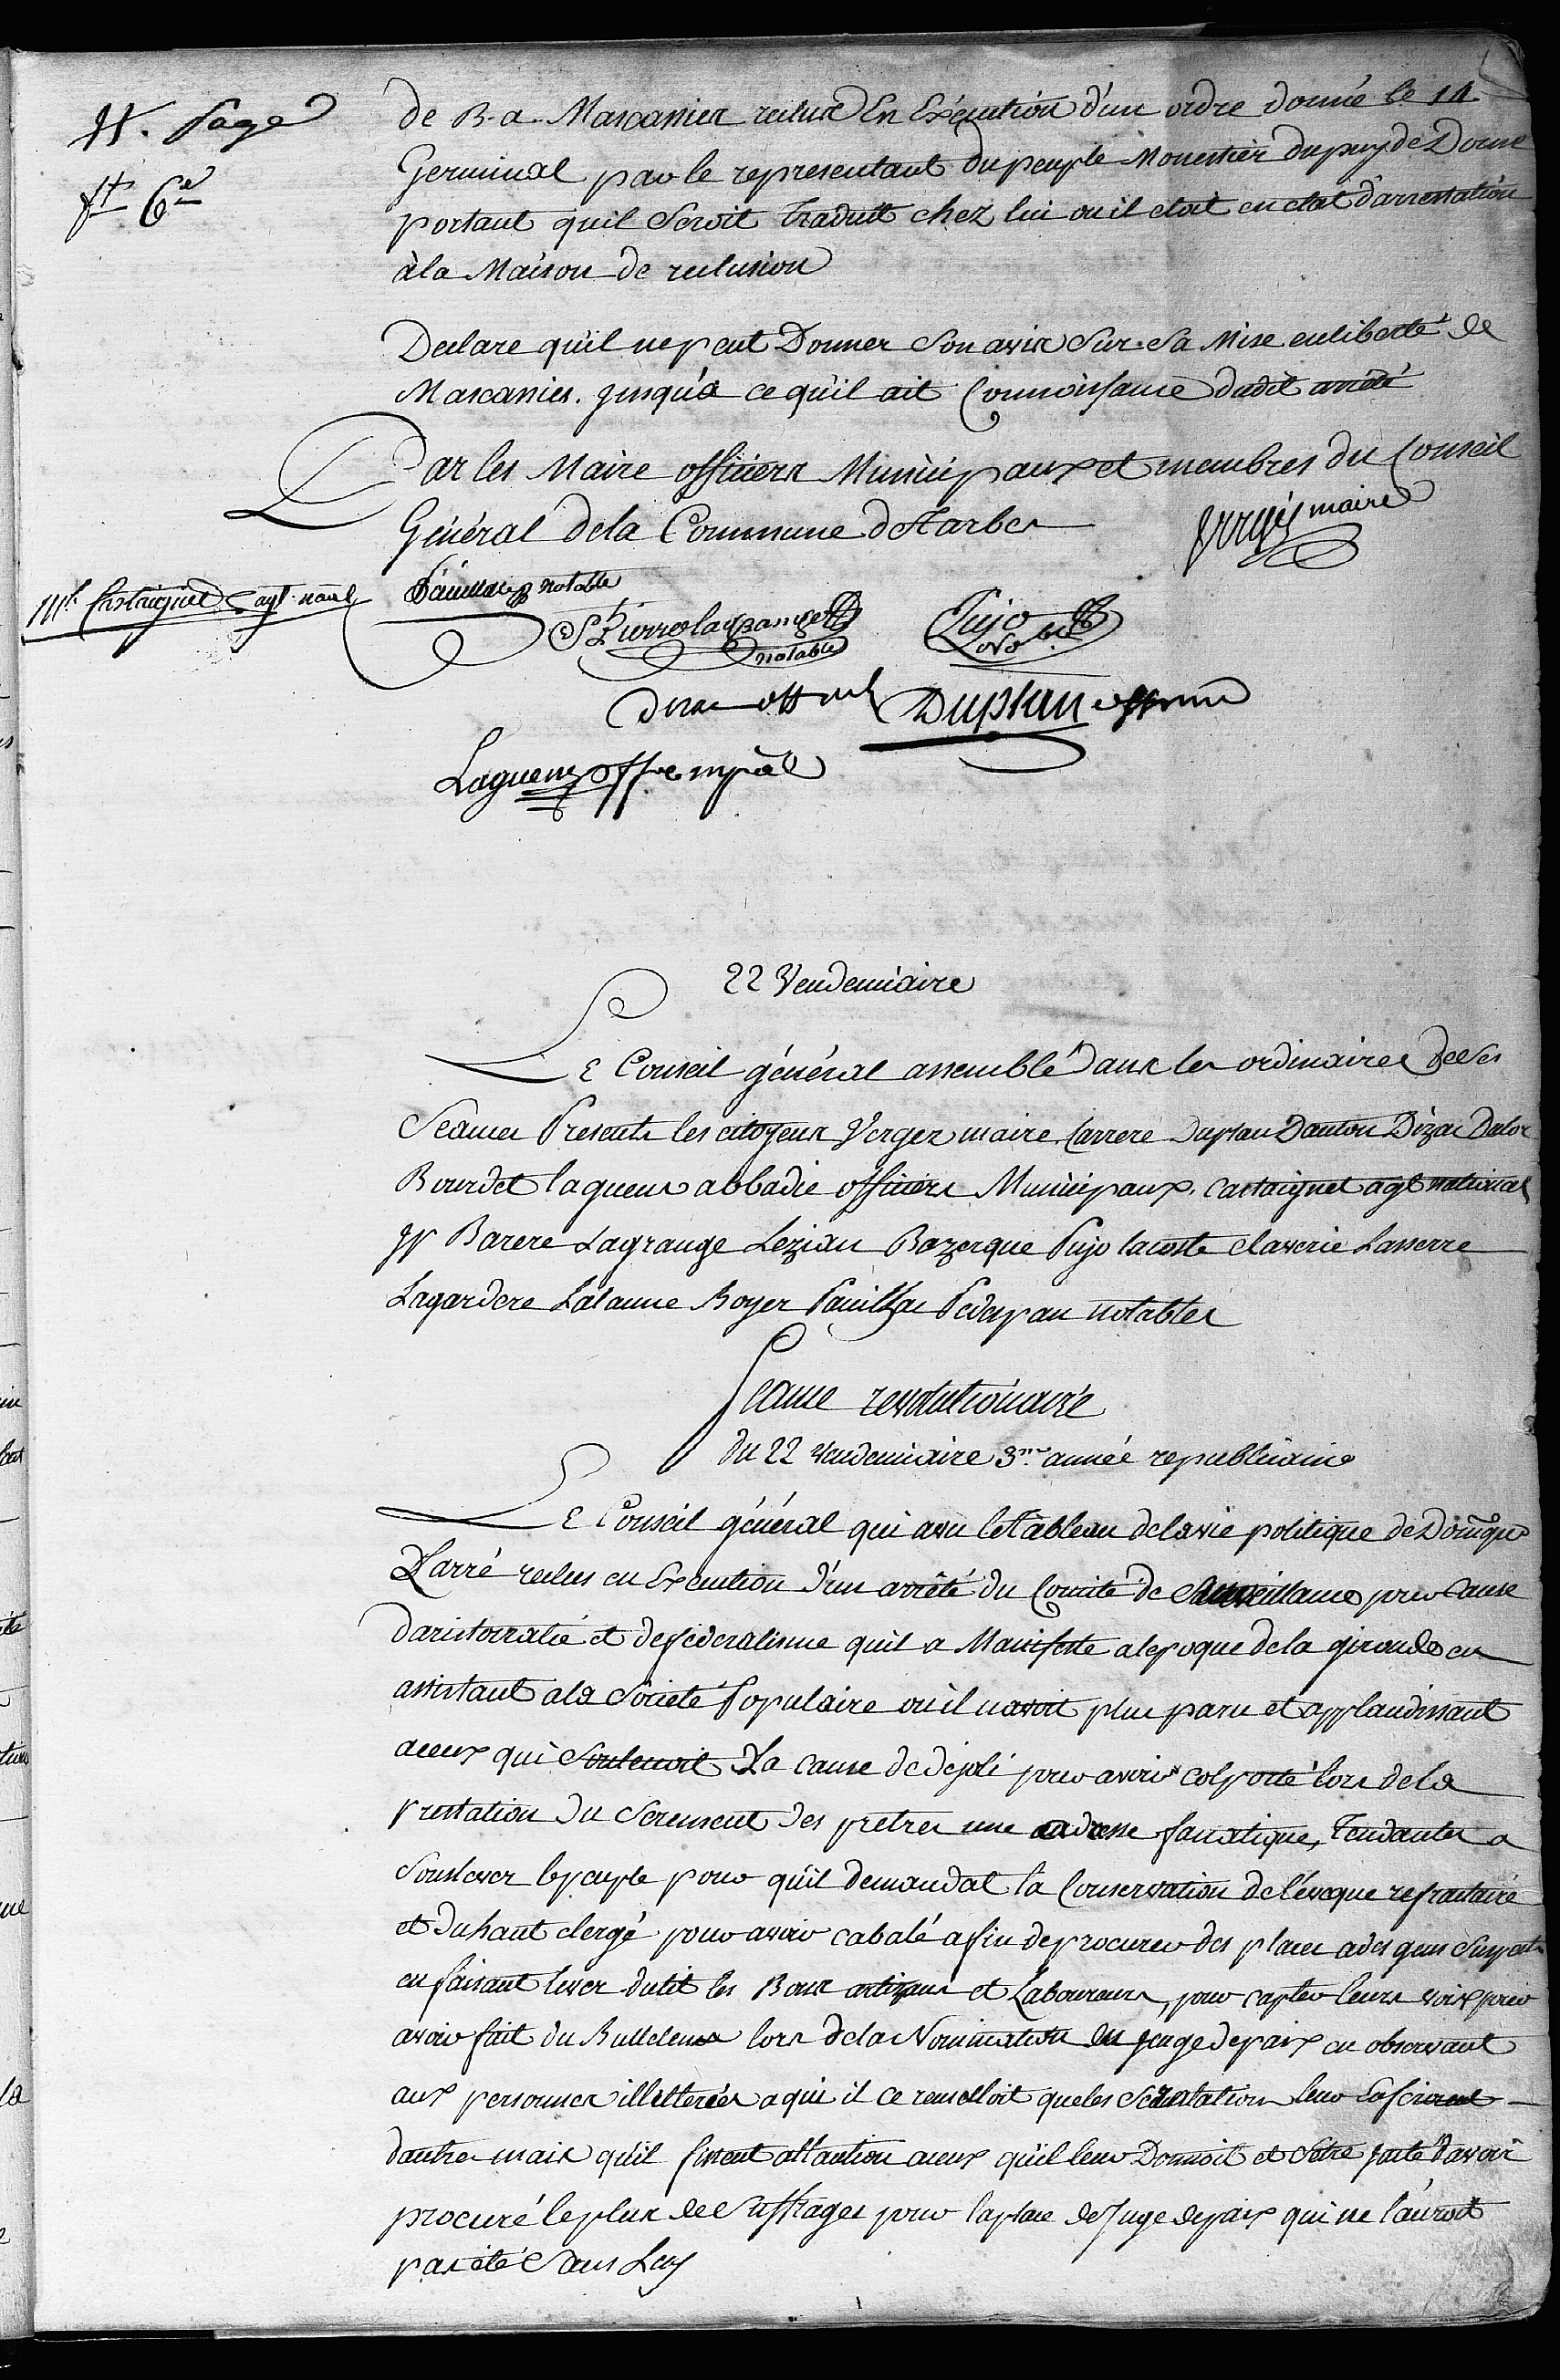 11. Page
ft 6e
de B. a. Mascassies reclus En Exécution d'un ordre donné le 14
Germinal par le representant du peuple Monestier du puy de Dome
portant quil seroit traduit chez lui ou il etoit en etat d'arrestation
à la Maison de reclusion
Declare quil ne peut Donner Son avis Sur Sa Mise en liberté de
Mascassies. jusqu'à ce qu'il ait Connoissance dudit arrêté
Par les Maire officiers Municipaux et membres du Conseil
Général de la Commune de Tarbes
Verges maire
Castaignet agt. naul
Pauilhac notable
St Pierre lagrange
notable
Pujo
Duplan off mun
Lagueus offe mpal
22 Vendemiaire
Le Conseil général assemblé dans les ordinaires de Ses
Seances Presents les citoyens Verges maire. Carrere Duplan Danton Dizac Dalos
Bourdet lagueus abbadie officiers Municipaux. castaignet agt national
Jp Barere Lagrange Lezian Bazerque Pujo lacoste claverie Lasserre
Lagardere Lalanne Boyer Pauilhac Pedepau notables
Seance revolutionaire
du 22 vendemiaire 3me année republicaine
Le Conseil général qui a vu le tableau de la vie politique de Domque
Larré reclus en Execution d'un arrêté du Comité de Surveillance pour cause
daristocratie et de federalisme quil a Manifeste a lepoque de la gironde en
assistant a la Societé Populaire ou il navoit plus paru et applaudissant
a ceux qui Soutenoit La cause de dejoli pour avoir colporté lors de la
prestation du Serement des pretres une adresse fanatique, tendantes a
Soulever le peuple pour qu'il demandat la Conservation de l'éveque refractaire
et du haut clergé pour avoir cabalé afin de procurer des places a des gens Suspects
en faisant lever du lit les Bons artizans et Laboureurs, pour capter leurs voix pour
avoir fait du Bulletens lors de la Nomination du juge de paix en observant
aux personnes illetterées a qui il ce remettoit que les Scrutation leur Lascioient
dautres mais qu'il fissent attantion a ceux qu'il leur Donnoit et Setre jacté davoir
procuré le plus de Suffrages pour la place de Juge de paix qui ne l'auroit
pas été Sans Luy